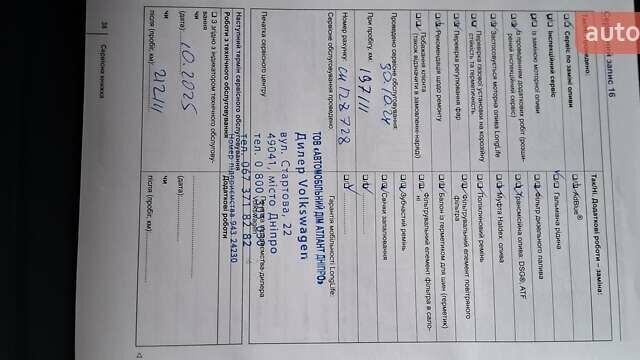 Сервісний запис 16
Також проведено:
Сервіс по заміні оливи
Інспекційний сервіс
із заміною моторної оливи
із проведенням додаткових робіт (розширений інспекційний сервіс)
Застосовується моторна олива LongLife
Перевірка газової установки на корозійну стійкість та герметичність
Перевірка регулювання фар
Рекомендація щодо ремонту
Побажання клієнта
(також відзначити в замовленні-наряді)
Проведено сервісне обслуговування:
30.10.24
При пробігу, км:
197111
Номер рахунку:
Сервісне обслуговування проведено:
Печатка сервісного центру
Так/ні: Додаткові роботи – заміна:
AdBlue®
Гальмівна рідина
Фільтр дизельного палива
Трансмісійна олива: DSG®, ATF
Муфта Haldex: олива
Полікліновий ремінь
Фільтрувальний елемент повітряного фільтра
Балон із герметиком для шин (герметик)
Фільтрувальний елемент фільтра в салоні
Зубчастий ремінь
Свічки запалювання
Гарантія мобільності LongLife:
ТОВ «АВТОМОБІЛЬНИЙ ДІМ АТЛАНТ ДНІПРО»
Дилер Volkswagen
вул. Стартова, 22
49041, місто Дніпро
тел. 067 371 82 82
Номер підприємства 543 24230
Наступний термін сервісного обслуговування
Роботи з технічного обслуговування
З згідно з індикатором технічного обслуговування
(дата):
10.2025
чи
після (пробіг, км):
212111
Додаткові роботи
(дата):
чи
після (пробіг, км):
38
Сервісна книжка
auto